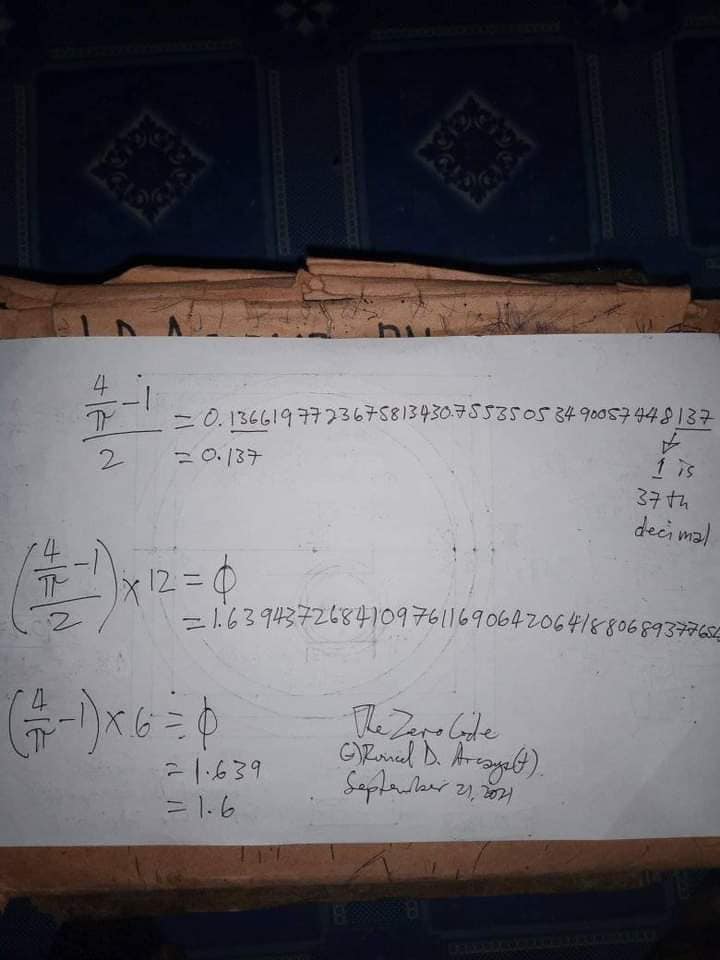 4/π - 1
2
= 0.136619772367581343075535053490057448137
= 0.137
1 is
37th
decimal
((4/π - 1)/2) × 12 = ϕ
= 1.639437268410976116906420641880689377654
(4/π - 1) × 6 = ϕ
= 1.639
= 1.6
The Zero Code
September 21, 2021